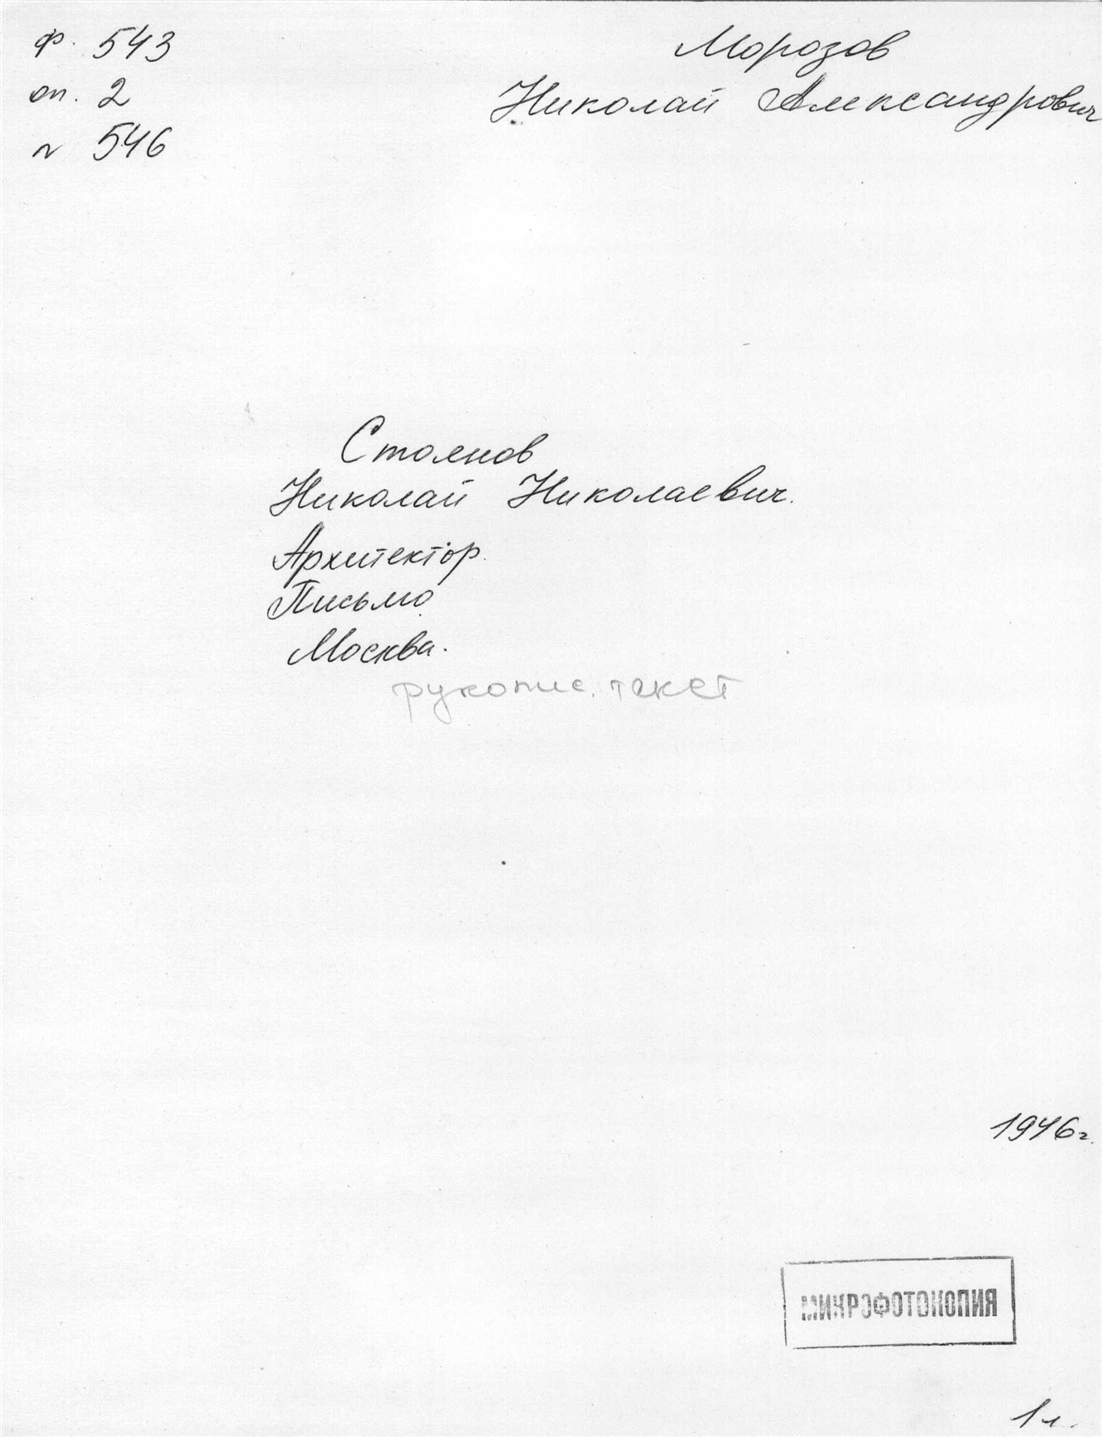 ф. 543
оп. 2
№ 546
Морозов
Николай Александрович
Стоянов
Николай Николаевич.
Архитектор.
Письмо
Москва.
рукопис. текст
1946г.
МИКРОФОТОКОПИЯ
1 л.